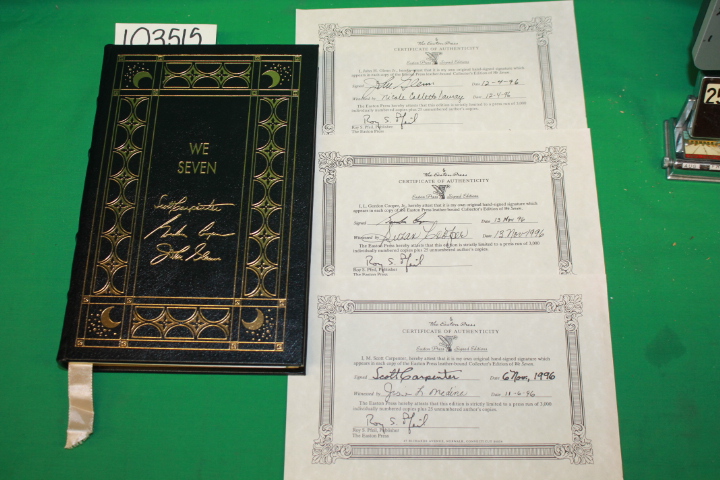 103515
WE
SEVEN
Scott Carpenter
Gordon Cooper
John Glenn
The Easton Press
CERTIFICATE OF AUTHENTICITY
Easton Press Signed Editions
I, John H. Glenn Jr., hereby attest that it is my own original hand-signed signature
appears in each copy of the Easton Press leather-bound Collector's Edition of We Seven.
Signed John Glenn Date 12-4-96
Witnessed by Date 12-4-96
The Easton Press hereby attests that this edition is strictly limited to a press run of 3,000
individually numbered copies plus 25 unnumbered author's copies.
Roy S. Pfeil
Roy S. Pfeil, Publisher
The Easton Press
The Easton Press
CERTIFICATE OF AUTHENTICITY
Easton Press Signed Editions
I, L. Gordon Cooper, Jr., hereby attest that it is my own original hand-signed signature which
appears in each copy of the Easton Press leather-bound Collector's Edition of We Seven.
Signed Gordon Cooper Date 13 Nov 96
Witnessed by Susan Date 13 Nov 1996
The Easton Press hereby attests that this edition is strictly limited to a press run of 3,000
individually numbered copies plus 25 unnumbered author's copies.
Roy S. Pfeil
Roy S. Pfeil, Publisher
The Easton Press
The Easton Press
CERTIFICATE OF AUTHENTICITY
Easton Press Signed Editions
I, M. Scott Carpenter, hereby attest that it is my own original hand-signed signature which
appears in each copy of the Easton Press leather-bound Collector's Edition of We Seven.
Signed Scott Carpenter Date 6 Nov, 1996
Witnessed by Date 11-6-96
The Easton Press hereby attests that this edition is strictly limited to a press run of 3,000
individually numbered copies plus 25 unnumbered author's copies.
Roy S. Pfeil
Roy S. Pfeil, Publisher
The Easton Press
47 RICHARDS AVENUE, NORWALK, CONNECTICUT 06857